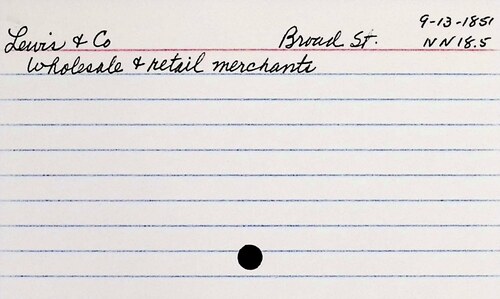 9-13-1851
Lewis & Co Broad St. NN18.5
Wholesale & retail merchants